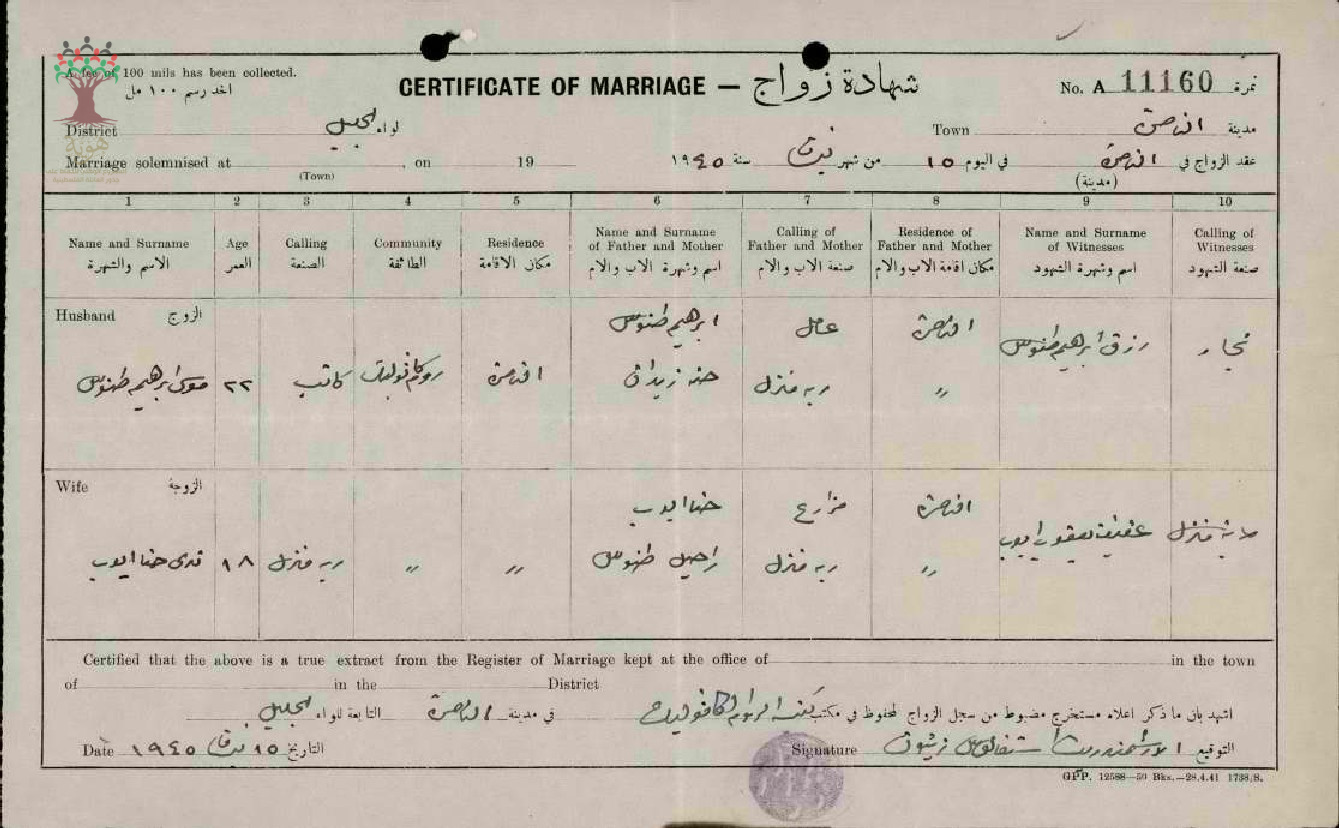 A fee of 100 mils has been collected.
اخذ رسم ١٠٠ مل
CERTIFICATE OF MARRIAGE — شهادة زواج
No. A 11160 نمرة
هوية
District لواء الجليل
Town مدينة الناصرة
Marriage solemnised at , on 19
(Town)
عقد الزواج في الناصرة في اليوم ١٥ من شهر نيسان سنة ١٩٤٥
(مدينة)
1 2 3 4 5 6 7 8 9 10
Name and Surname
الاسم والشهرة
Age
العمر
Calling
الصنعة
Community
الطائفة
Residence
مكان الاقامة
Name and Surname
of Father and Mother
اسم وشهرة الاب والام
Calling of
Father and Mother
صنعة الاب والام
Residence of
Father and Mother
مكان اقامة الاب والام
Name and Surname
of Witnesses
اسم وشهرة الشهود
Calling of
Witnesses
صنعة الشهود
Husband الزوج
موسى ابرهيم طنوس
٢٢
كاتب
روم كاثوليك
الناصرة
ابرهيم طنوس
حنه زيدان
عامل
ربة منزل
الناصرة
〃
رزق ابرهيم طنوس
نجار
Wife الزوجة
حنا ايوب
١٨
ربة منزل
〃
〃
حنا ايوب
راحيل طنوس
مزارع
ربة منزل
الناصرة
〃
عفيفة يعقوب ايوب
ربة منزل
Certified that the above is a true extract from the Register of Marriage kept at the office of in the town
of in the District
اشهد بان ما ذكر اعلاه مستخرج مضبوط من سجل الزواج المحفوظ في مكتب كنيسة الروم الكاثوليك في مدينة الناصرة التابعة للواء الجليل
Date ١٩٤٥ نيسان ١٥ التاريخ
Signature التوقيع الارشمندريت
GPP. 12588—50 Bks.—28.4.41 1738/S.